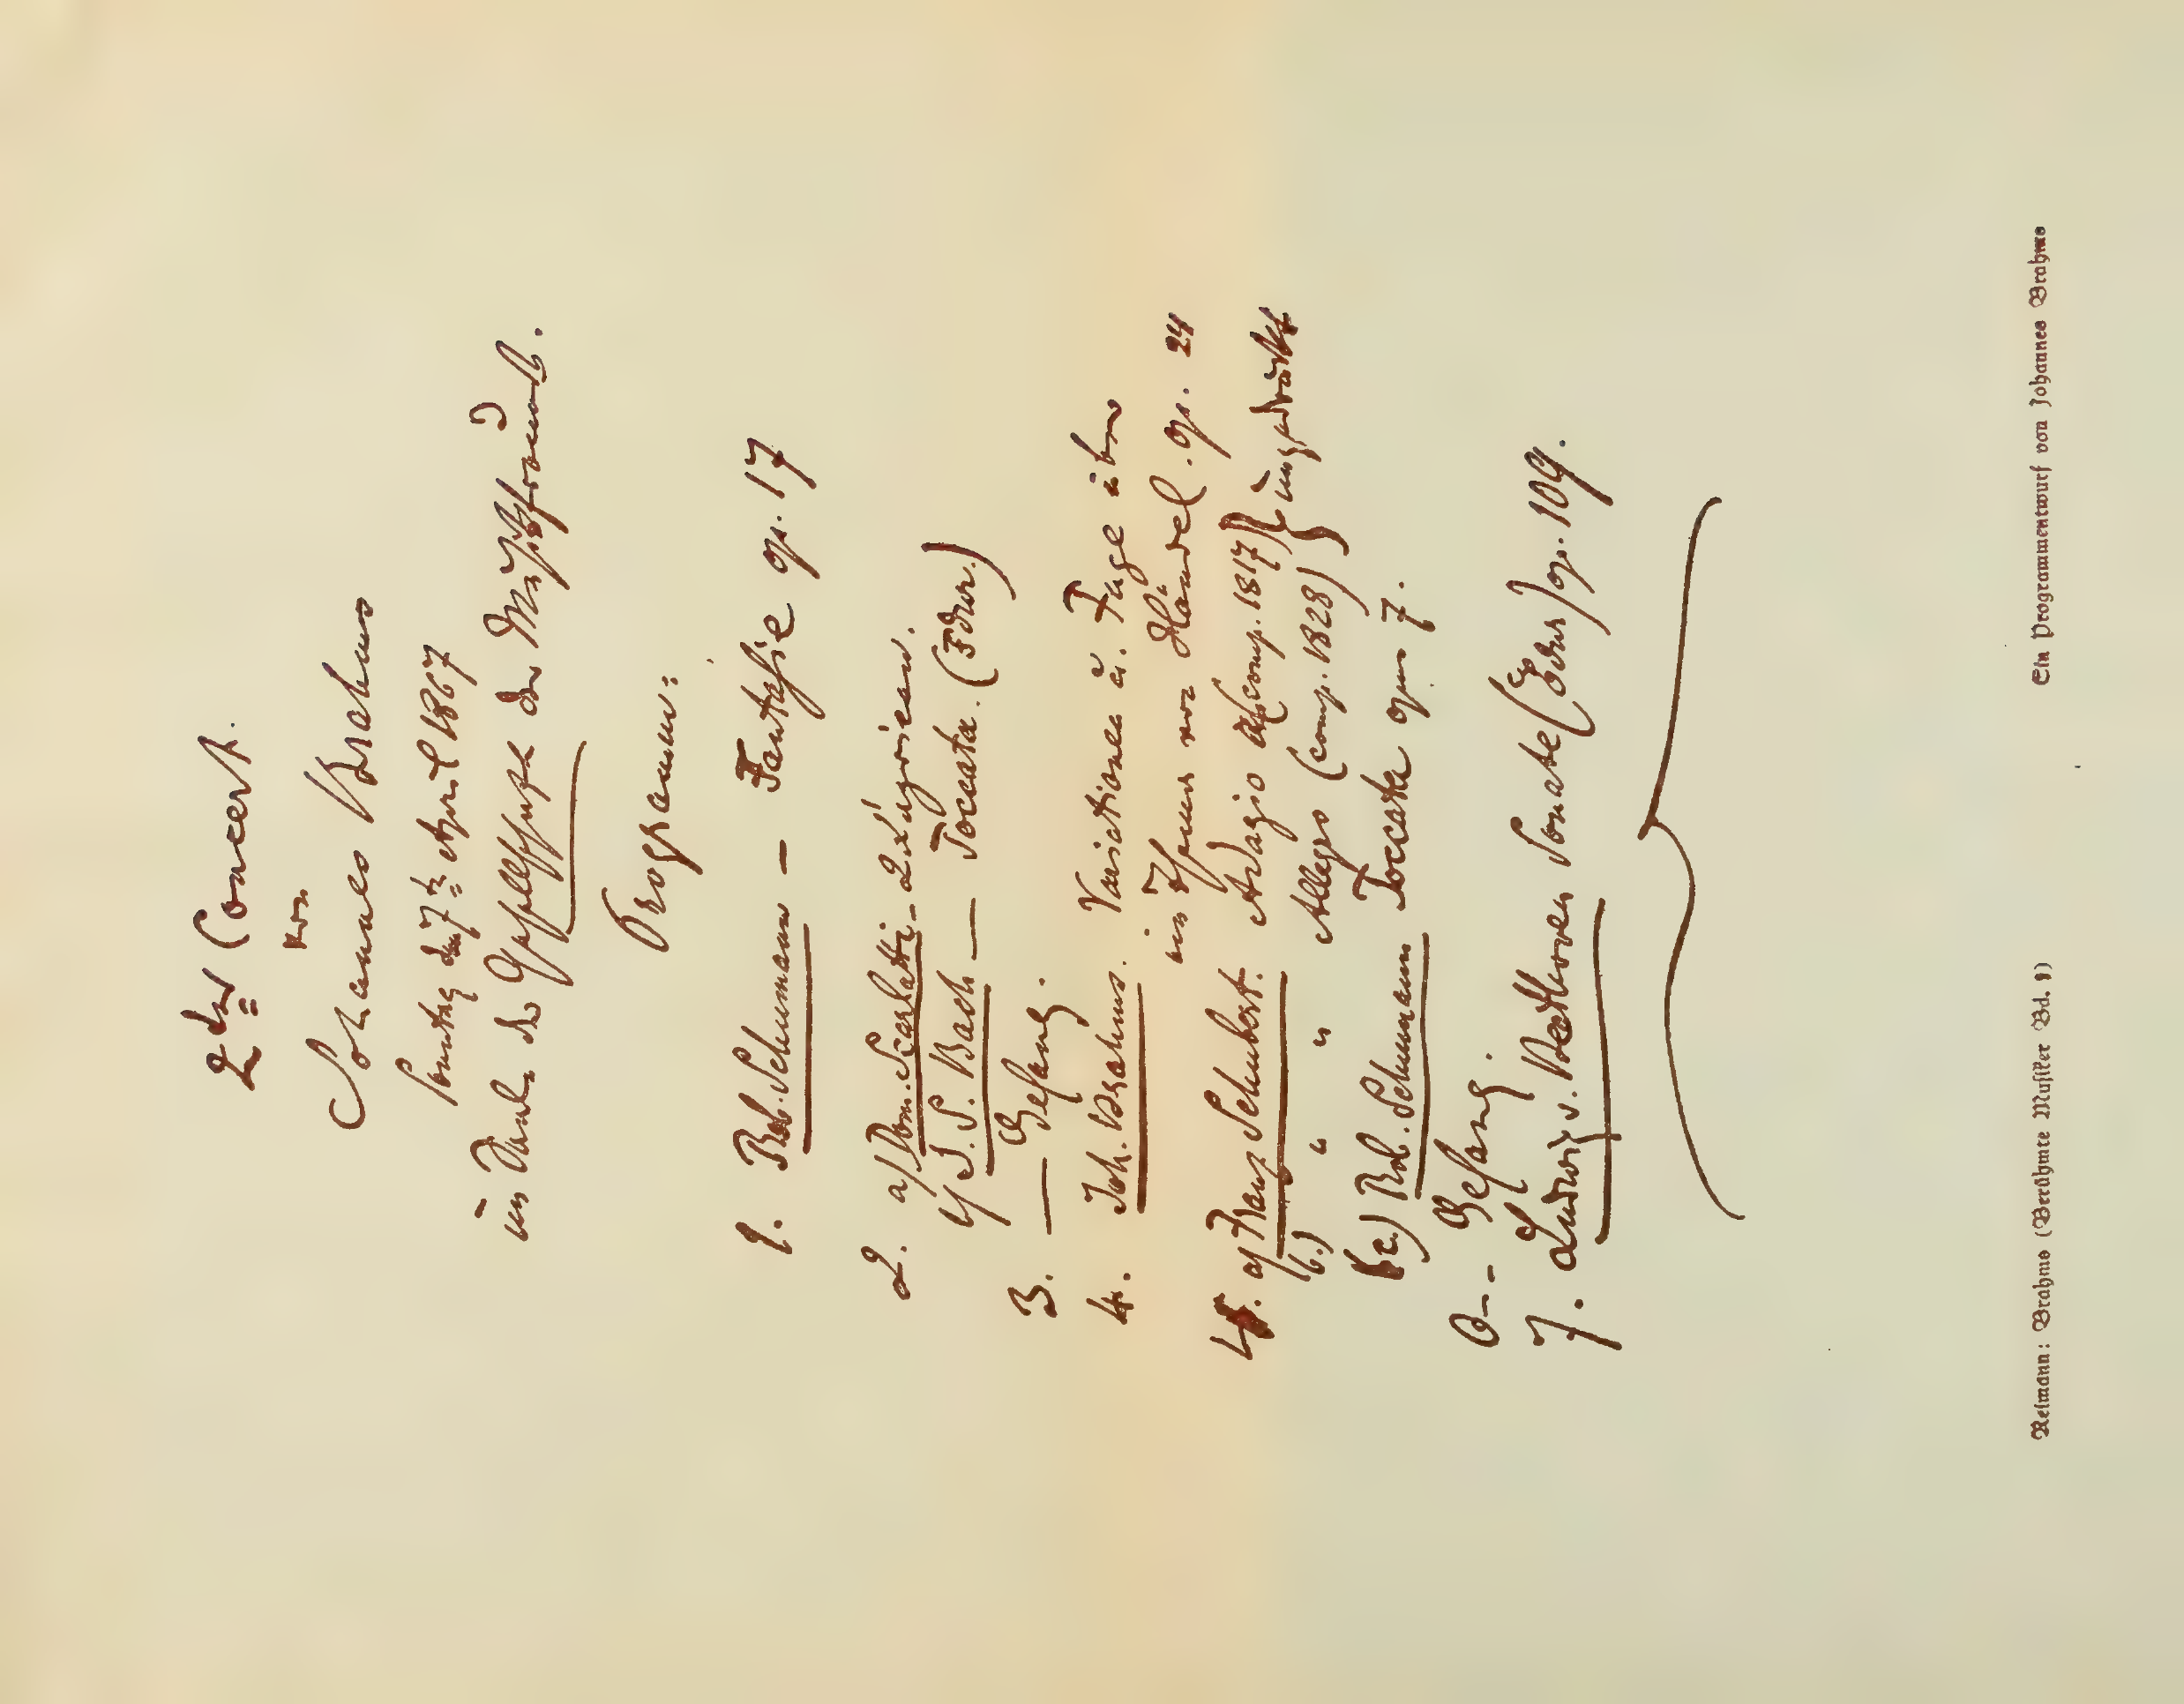 2ter Concert.
von
Johannes Brahms
Sonntag den 7ten April 1867
im Saale der Gesellschaft der Musikfreunde.
Programm:
1. Rob. Schumann – Fantasie op. 17
2. a) Dom. Scarlatti – 2 Capricen.
b) J. S. Bach — Toccata. (Fdur.)
3. — Gesang.
4. Joh. Brahms. Variationen u. Fuge über
ein Thema von Händel. op. 24
a) Franz Schubert. Adagio (comp. 1817) } ungedruckt
(b.) " " Allegro (comp. 1828)
c) Rob. Schumann Toccata opus 7.
6 -- Gesang.
7. Ludwig v. Beethoven Sonate (Edur) op. 109.
Reimann: Brahms (Berühmte Musiker Bd. 1) Ein Programmentwurf von Johannes Brahms